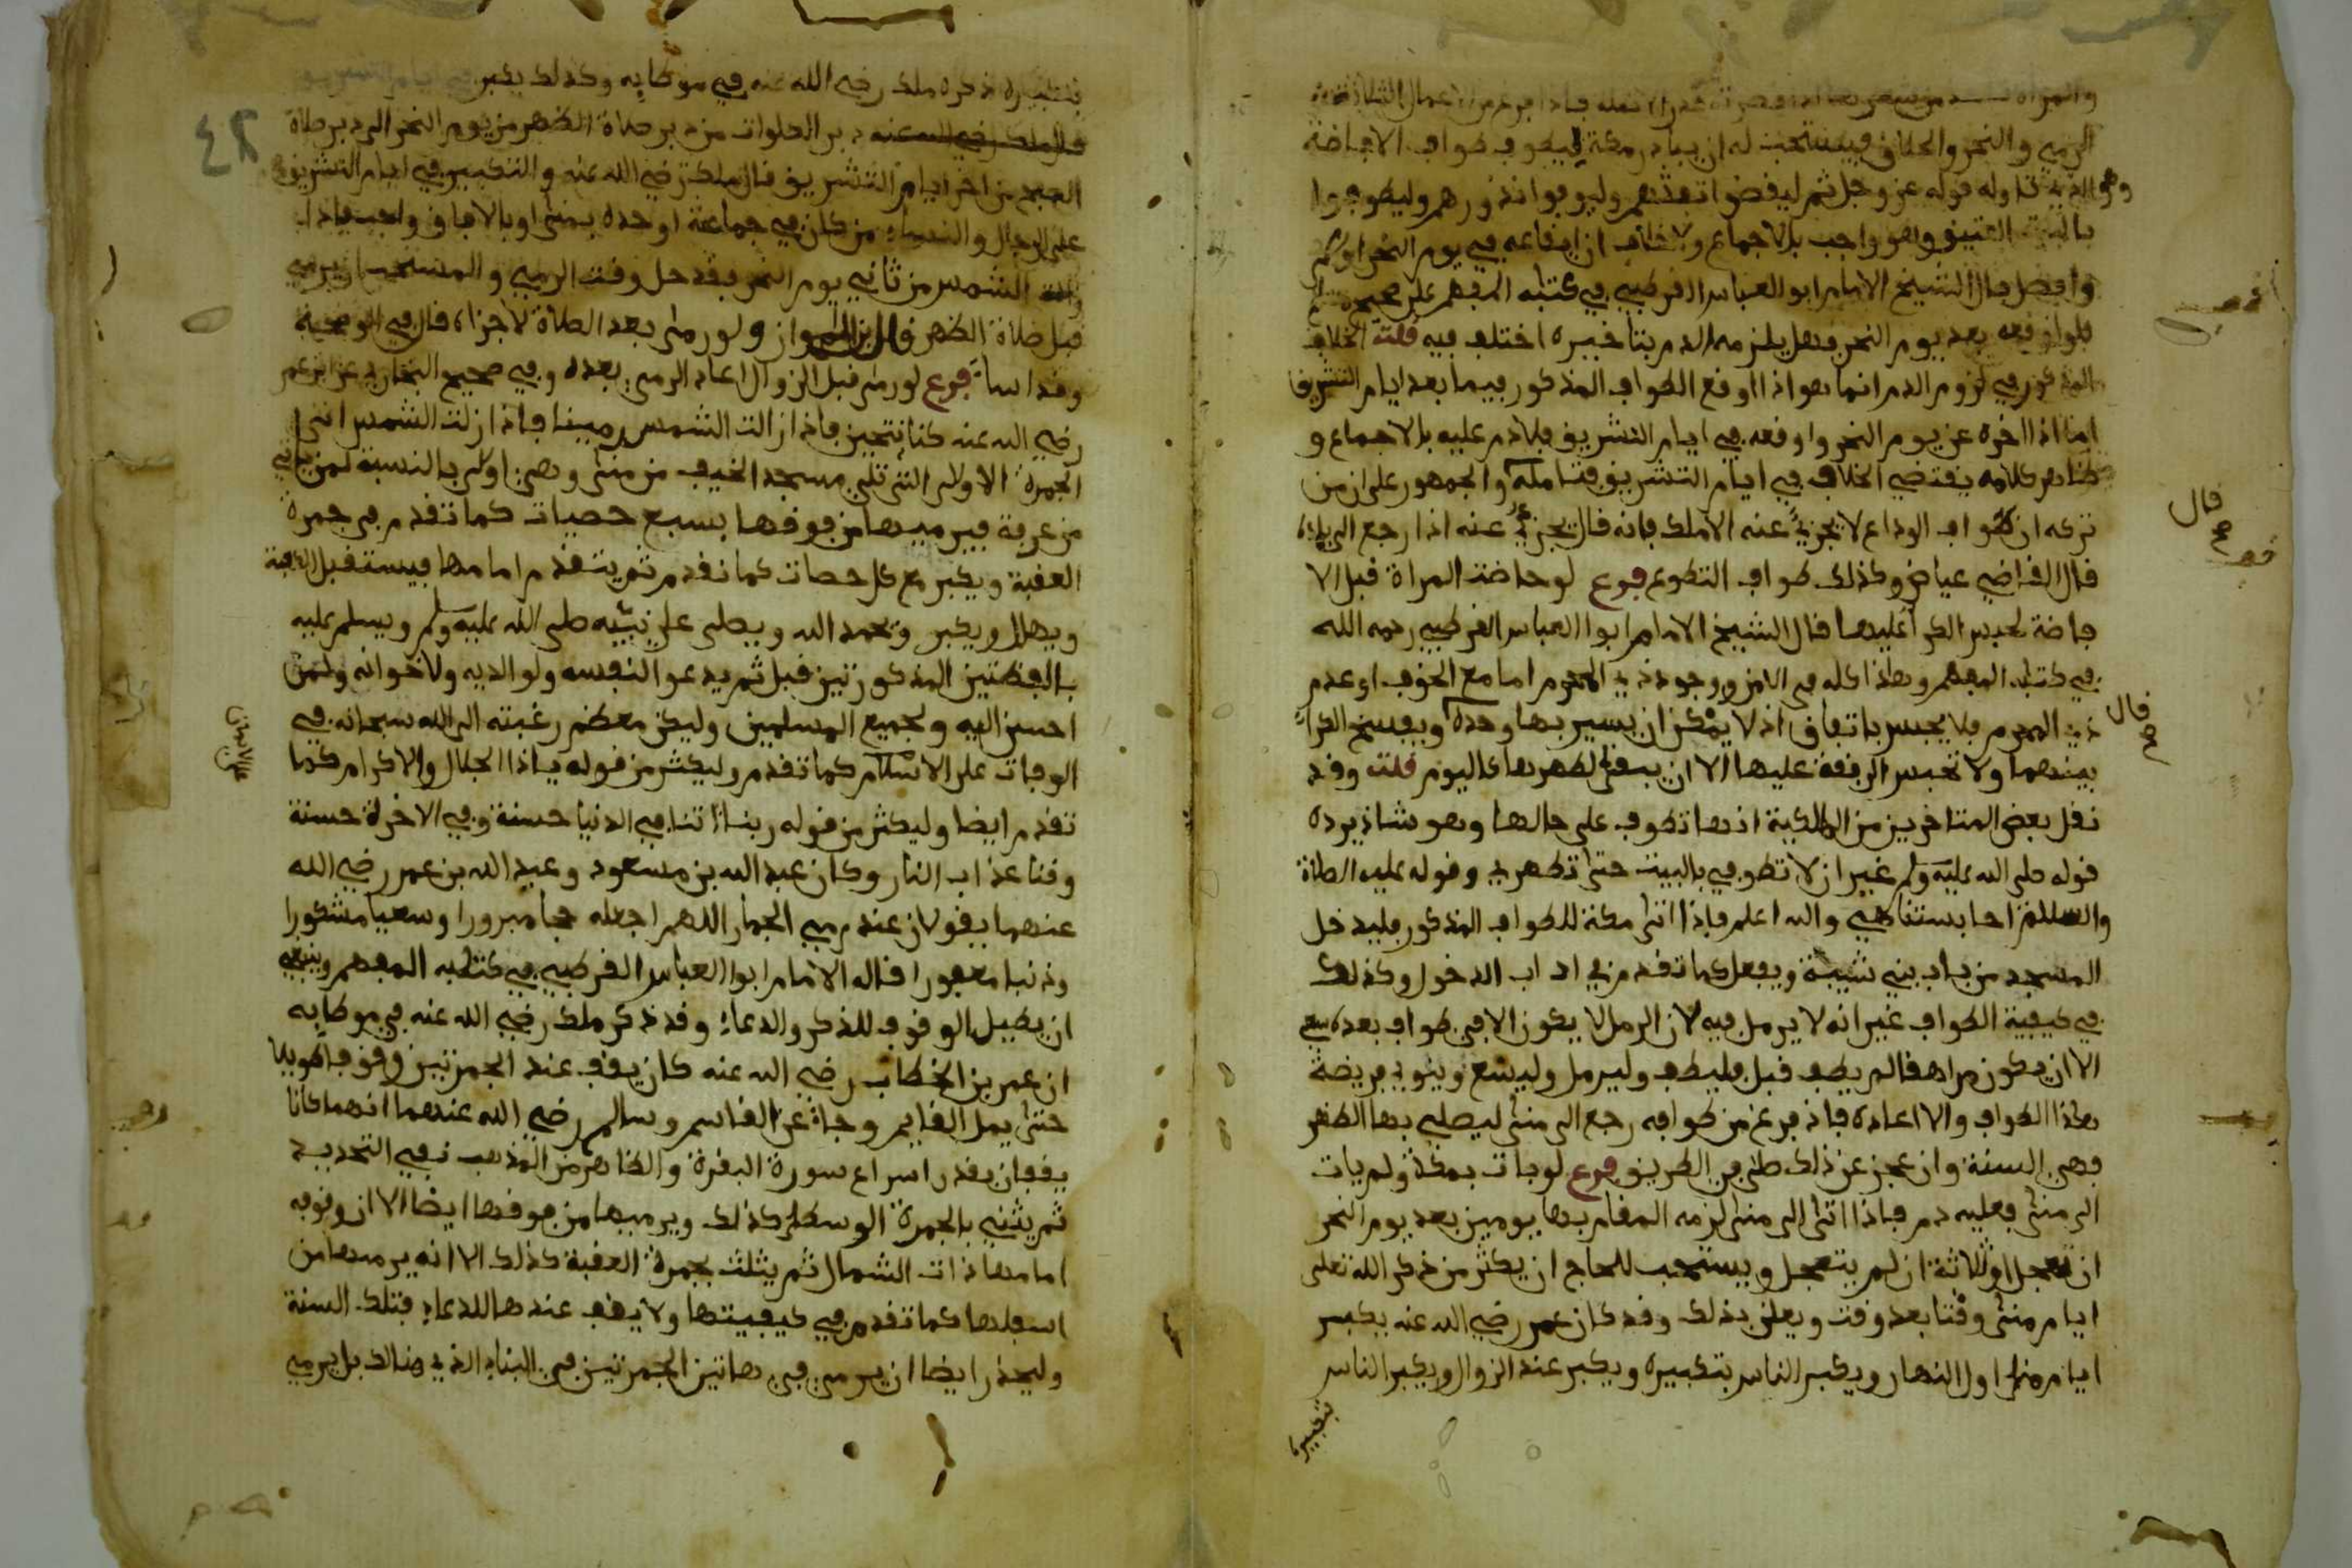 الرمي والنحر والحلاق فيستحب له ان يبادر مكة ليطوف طواف الافاضة
وهو الذي تناوله قوله عز وجل ثم ليقضوا تفثهم وليوفوا نذورهم وليطوفوا
بالبيت العتيق وهو واجب بالاجماع ولا خلاف ان ايقاعه في يوم النحر اولى
وافضل قال الشيخ الامام ابو العباس القرطبي في كتابه المفهم على صحيح
فلو اوقعه بعد يوم النحر فهل يلزمه الدم بتاخيره اختلف فيه قلت الخلاف
المذكور في لزوم الدم انما هو اذا اوقع الطواف المذكور فيما بعد ايام التشريق
اما اذا اخره عن يوم النحر واوقعه في ايام التشريق فلا دم عليه بالاجماع و
ظاهر كلامه يقتضي الخلاف في ايام التشريق فتامله والجمهور على ان من
تركه ان طواف الوداع لا يجزي عنه الا ملك فانه قال يجزي عنه اذا رجع الى بلده
قال القاضي عياض وكذلك طواف التطوع فرع لو حاضت المراة قبل الا
فاضة لحبس الكرا عليها قال الشيخ الامام ابوا العباس القرطبي رحمه الله
في كتابه المفهم وهذا كله في الامن ووجود ذي المحرم اما مع الخوف او عدم
ذي المحرم فلا يحبس باتفاق اذ لا يمكن ان يسير بها وحده ويفسخ الكرا
بينهما ولا تحبس الرفقة عليها الا ان يبقى لطهرها كاليوم قلت وقد
نقل بعض المتاخرين من المالكية انها تطوف على حالها وهو شاذ يرده
قوله صلى الله عليه وسلم غير ان لا تطوفي بالبيت حتى تطهري وقوله عليه الصلاة
والسلام احابستنا هي والله اعلم فاذا اتى مكة للطواف المذكور فليدخل
المسجد من باب بني شيبة ويفعل كما تقدم في اداب الدخول وكذلك
في كيفية الطواف غير انه لا يرمل فيه لان الرمل لا يكون الا في طواف بعده سعي
الا ان يكون مراهقا لم يطف قبل فليطف وليرمل وليسع وينوي فريضة
هذا الطواف والا اعاده فاذ فرغ من طوافه رجع الى منى ليصلي بها الظهر
فهي السنة وان عجز عن ذلك صلى في الطريق فرع لو بات بمكة ولم يات
الى منى فعليه دم فاذا اتى الى منى لزمه المقام بها يومين بعد يوم النحر
ان تعجل او ثلاثة ان لم يتعجل ويستحب للحاج ان يكثر من ذكر الله تعلى
ايام منى وقتا بعد وقت ويعلن بذلك وقد كان عمر رضي الله عنه يكبر
ايام منى اول النهار ويكبر الناس بتكبيره ويكبر عند الزوال ويكبر الناس
بتكبيره
قال
قال
بتكبيره ذكره ملك رضي الله عنه في موطاه وكذلك يكبر في ايام التشريق
قال ملك رضي الله عنه دبر الصلوات من دبر صلاة الظهر من يوم النحر الى دبر صلاة
الصبح من اخر ايام التشريق قال ملك رضي الله عنه والتكبير في ايام التشريق
على الرجال والنساء من كان في جماعة او وحده بمنى او بالافاق واجب فاذا
زالت الشمس من ثاني يوم النحر فقد حل وقت الرمي والمستحب ان يرمي
قبل صلاة الظهر قال ابن المواز ولو رمى بعد الصلاة لاجزاه قال في الوضحية
وقد اسا فرع لو رمى قبل الزوال اعاد الرمي بعده وفي صحيح البخاري عن ابن عمر
رضي الله عنه كنا نتحين فاذ ازالت الشمس رمينا فاذا زلت الشمس اتى
الجمرة الاولى التي تلي مسجد الخيف من منى وهي اولى بالنسبة لمن ياتي
من عرفة فيرميها من فوقها بسبع حصيات كما تقدم في جمرة
العقبة ويكبر مع كل حصات كما تقدم ثم يتقدم امامها فيستقبل القبلة
ويهلل ويكبر ويحمد الله ويصلى على نبيه صلى الله عليه وسلم ويسلم عليه
باللفظتين المذكورتين قبل ثم يدعو النفسه ولوالديه ولاخوانه ولمن
احسن اليه ولجميع المسلمين وليكن معظم رغبته الى الله سبحانه في
الوفات على الاسلام كما تقدم وليكثر من قوله ياذا الجلال والاكرام كما
تقدم ايضا وليكثر من قوله ربنا اتنا في الدنيا حسنة وفي الاخرة حسنة
وقنا عذاب النار وكان عبد الله بن مسعود وعبد الله بن عمر رضي الله
عنهما يقولان عند رمي الجمار اللهم اجعله حجا مبرورا وسعيا مشكورا
وذنبا مغفورا قاله الامام ابوا العباس القرطبي في كتابه المفهم وينبغي
ان يطيل الوقوف للذكر والدعاء وقد ذكر ملك رضي الله عنه في موطاه
ان عمر بن الخطاب رضي الله عنه كان يقف عند الجمرتين وقوفا طويلا
حتى يمل القايم وجاء عن القاسم وسالم رضي الله عنهما انهما كانا
يقفان بقدر اسراع سورة البقرة والظاهر من المذهب نفي التحديد
ثم يثني بالجمرة الوسطى كذلك ويرميها من فوقها ايضا الا ان وقوفه
امامها ذات الشمال ثم يثلث بجمرة العقبة كذلك الا انه يرميها من
اسفلها كما تقدم في كيفيتها ولا يقف عندها للدعاء فتلك السنة
وليحذر ايضا ان يرمي في هاتين الجمرتين في البناء الذي هنالك بل يرمي
٤٢